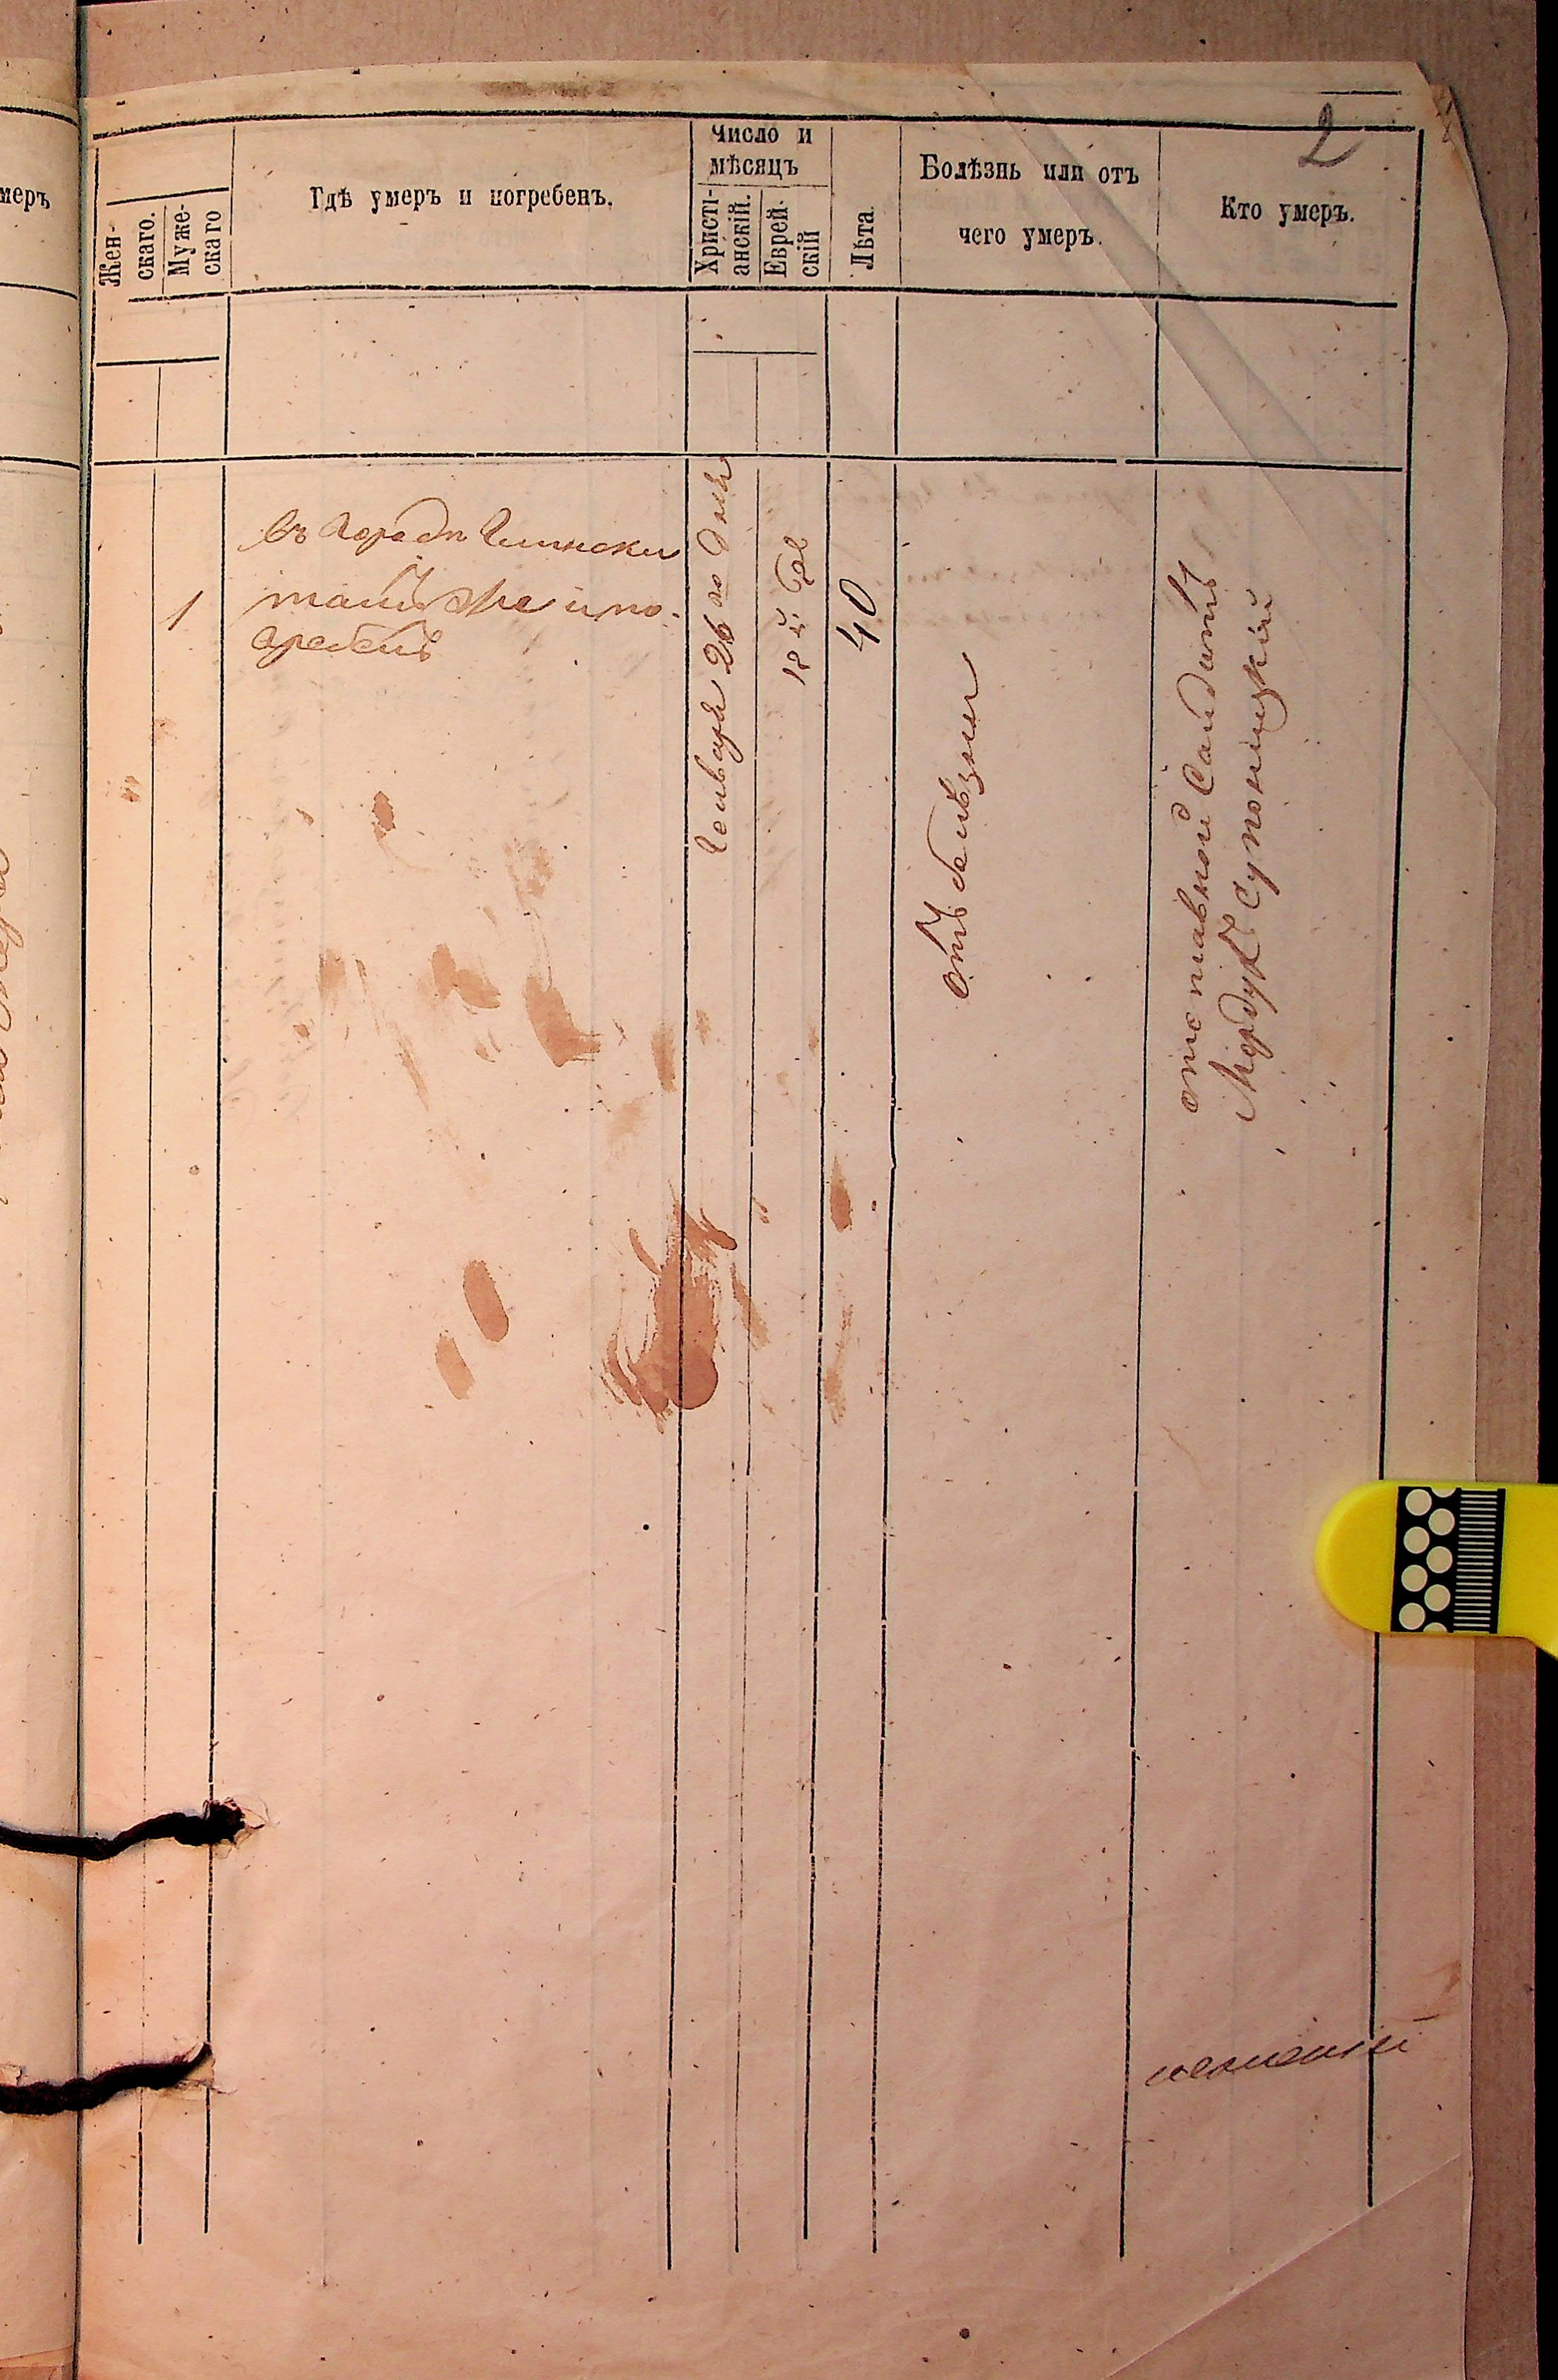 2
меръ
Жен-
скаго.
Муже-
скаго
Гдѣ умеръ и погребенъ.
Число и
мѣсяцъ
Христі-
анскій.
Еврей-
скій
Лѣта
Болѣзнь или отъ
чего умеръ.
Кто умеръ.
1
въ городѣ
тамъ же и по-
гребенъ
Генваря 26 го дня
18
40
отъ болѣзни
отставной Солдатъ
Мордух Супоницкій